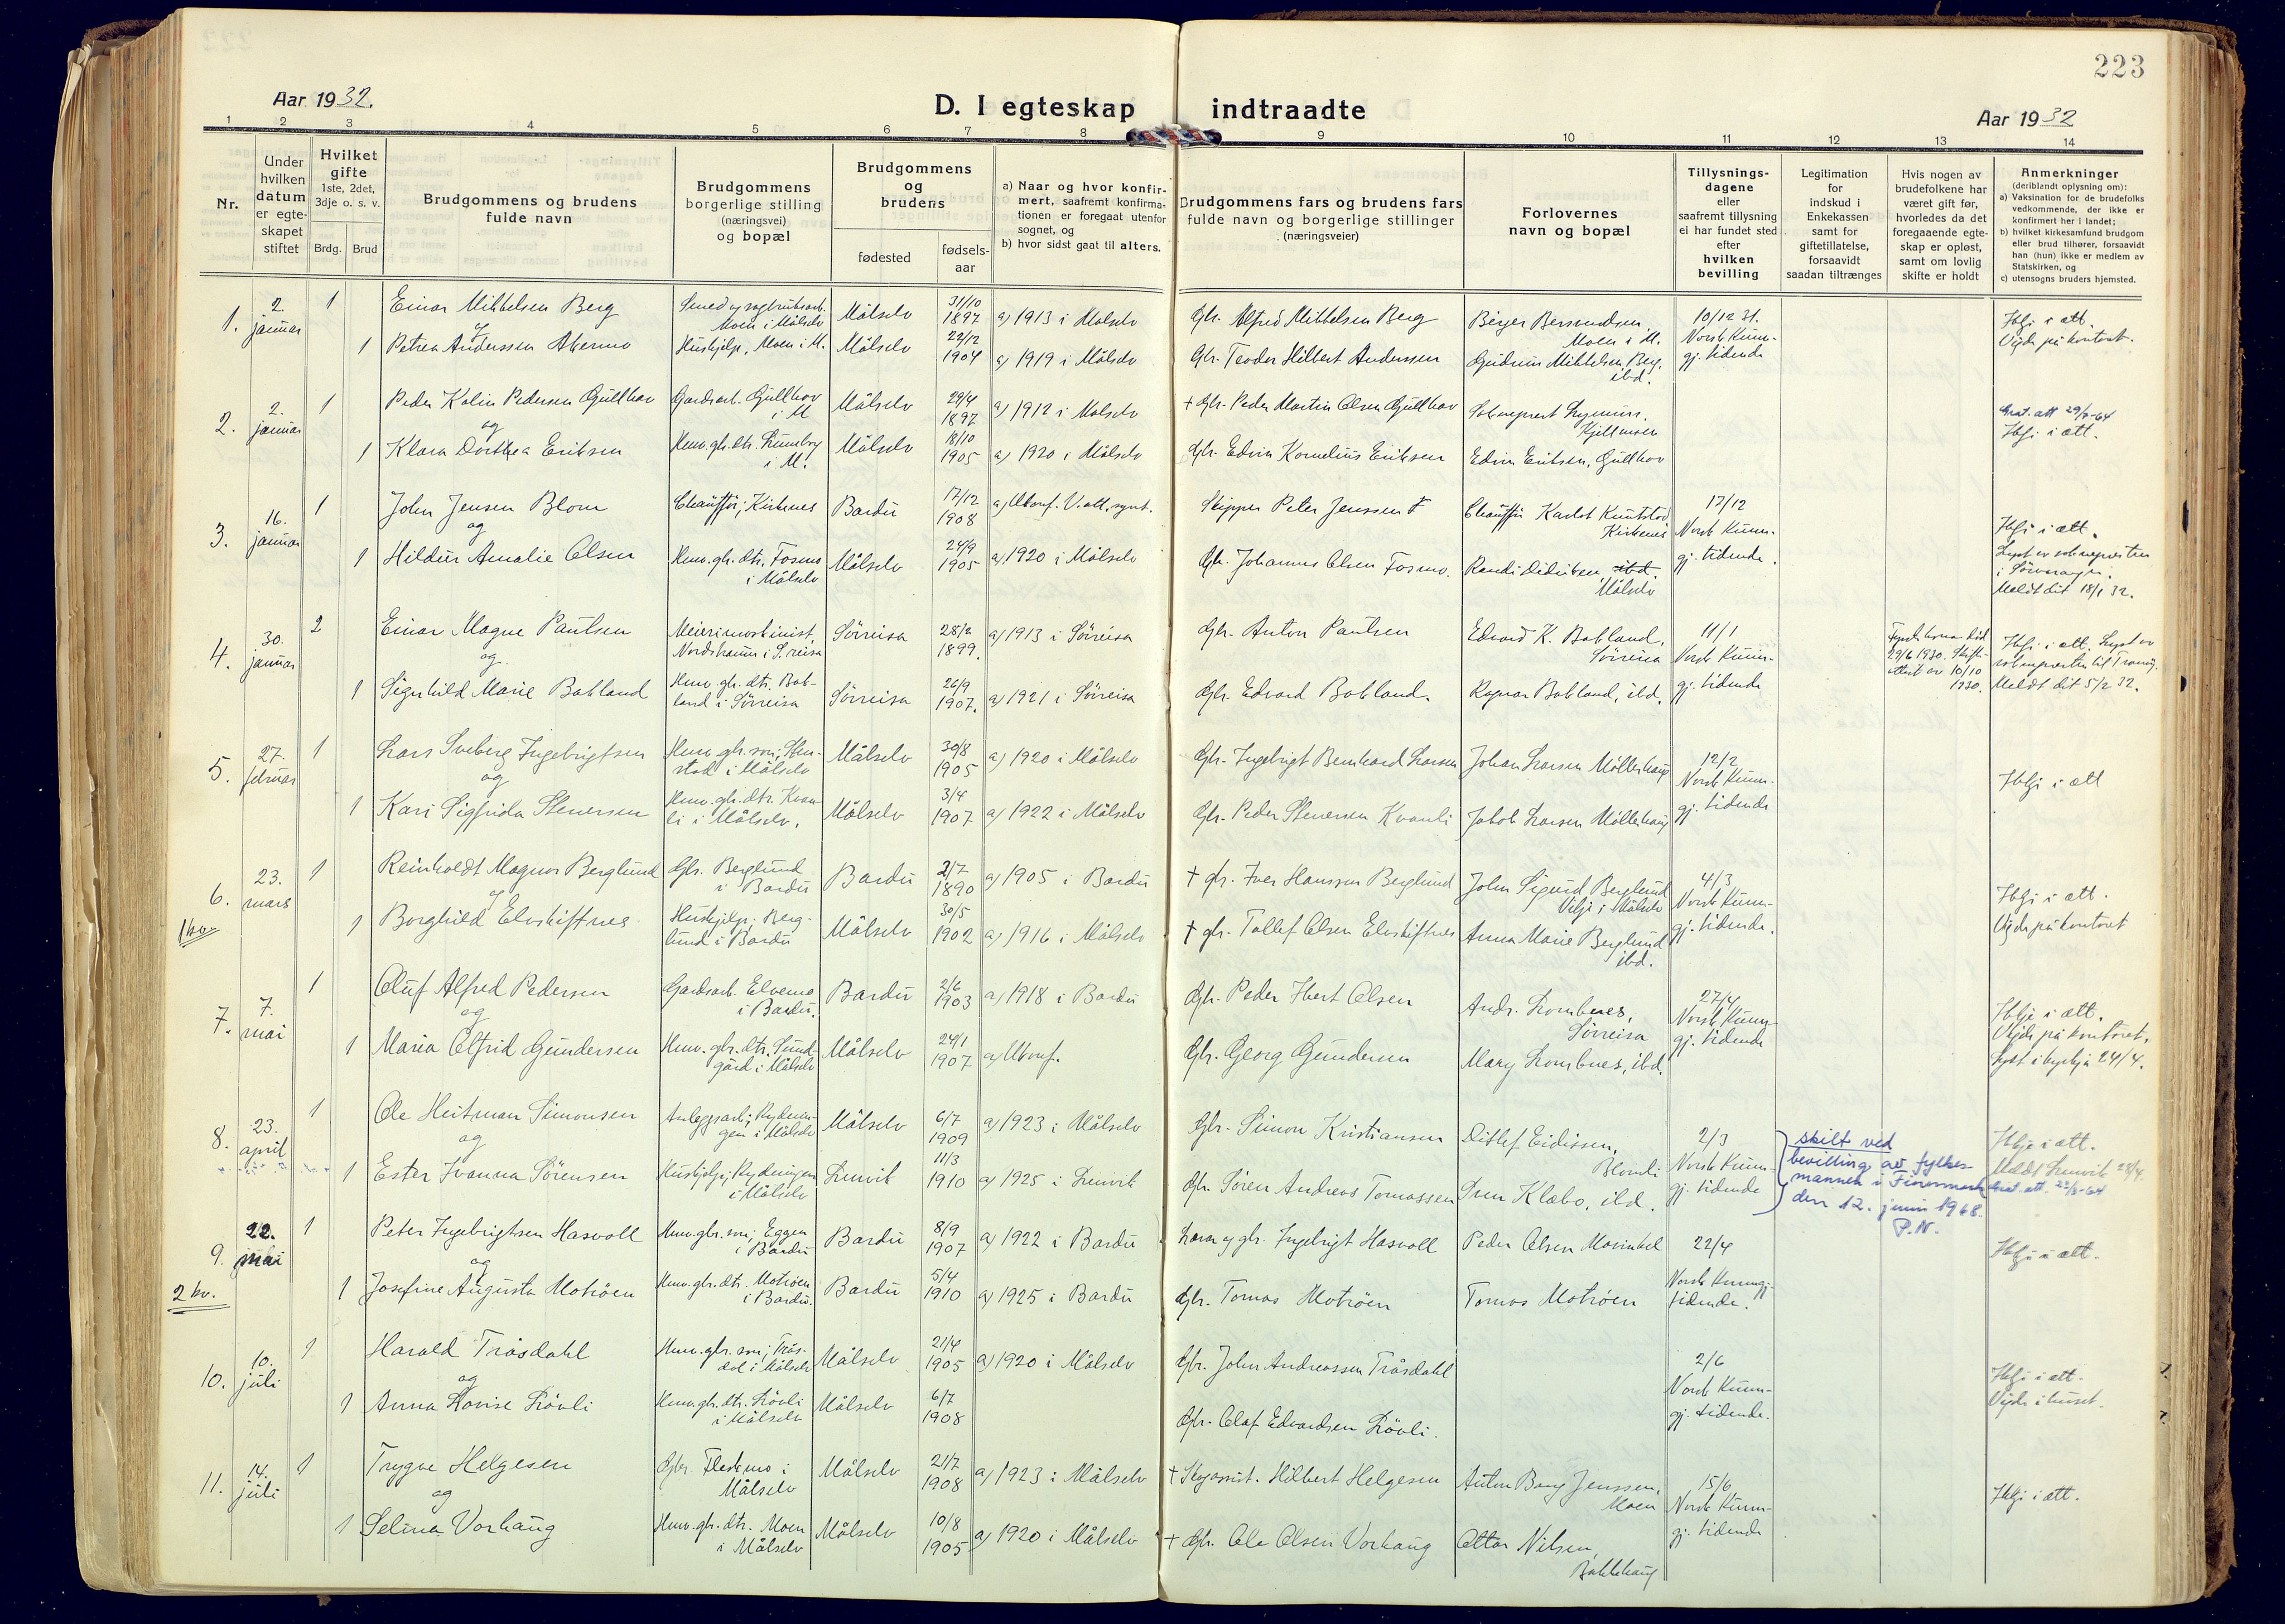 223
Aar 1932.
D. I egteskap indtraadte
Aar 1932
1 2 3 4 5 6 7 8 9 10 11 12 13 14
Nr.
Under hvilken datum er egteskapet stiftet
Hvilket gifte 1ste, 2det, 3dje o. s. v.
Brdg. Brud
Brudgommens og brudens fulde navn
Brudgommens borgerlige stilling (næringsvei) og bopæl
Brudgommens og brudens
fødested
fødsels-aar
a) Naar og hvor konfirmert, saafremt konfirmationen er foregaat utenfor sognet, og
b) hvor sidst gaat til alters.
Brudgommens fars og brudens fars fulde navn og borgerlige stillinger (næringsveier)
Forlovernes navn og bopæl
Tillysningsdagene eller saafremt tillysning ei har fundet sted efter hvilken bevilling
Legitimation for indskud i Enkekassen samt for giftetillatelse, forsaavidt saadan tiltrænges
Hvis nogen av brudefolkene har været gift før, hvorledes da det foregaaende egteskap er opløst, samt om lovlig skifte er holdt
Anmerkninger (deriblandt oplysning om):
a) Vaksination for de brudefolks vedkommende, der ikke er konfirmert her i landet;
b) hvilket kirkesamfund brudgom eller brud tilhører, forsaavidt han (hun) ikke er medlem av Statskirken, og
c) utensogns bruders hjemsted.
1. 2. januar 1 Einar Mikkelsen Berg
Moen i Målselv Målselv 31/10 1897 a) 1913 i Målselv Gbr. Alfred Mikkelsen Berg Birger Berntsen, Moen i M. 10/12 31. Norsk Kunngj. tidende
og
1 Petrea Anderssen Akermo Hushjelp, Moen i M. Målselv 22/12 1904 a) 1919 i Målselv Gbr. Teodor Hilbert Anderssen Gudrun Mikkelsen Berg, ibd.
Vigde på kontoret.
2. 2. januar 1 Peder Kolin Pedersen Gullhav Gardsarb. Gullhav i M. Målselv 29/4 1897 a) 1912 i Målselv + Gbr. Peder Martin Olsen Gullhav
og
1 Klara Dorthea Eriksen i M. Målselv 18/10 1905 a) 1920 i Målselv Gbr. Edvin Kornelius Eriksen Edvin Eriksen, Gullhav
3. 16. januar 1 John Jensen Blom Chauffør, Kirkenes Bardu 17/12 1908 a) Ukonf. Skipper Peter Jenssen Kirkenes 17/12 Norsk Kunngj. tidende.
og
1 Hildur Amalie Olsen Hmv. gbr. dtr. Fosmo i Målselv Målselv 24/9 1905 a) 1920 i Målselv Gbr. Johannes Olsen Fosmo. Randi Didriksen, ibd. Målselv
Meldt dit 18/1 32.
4. 30. januar 2 Einar Magne Paulsen Meierimaskinist, Sørreisa 28/2 1899. a) 1913 i Sørreisa Gbr. Anton Paulsen Edvard K. Bakland, Sørreisa 11/1 Norsk Kunngj. tidende
og
1 Signhild Marie Bakland Hmv. gbr. dtr. Bakland i Sørreisa Sørreisa 26/9 1907. a) 1921 i Sørreisa Gbr. Edvard Bakland. Ragnar Bakland, ibd.
29/6 1930. Skifteattest av 10/10 1930.
Meldt dit 5/2 32.
5. 27. februar 1 Lars Sveberg Ingebrigtsen Målselv 30/8 1905 a) 1920 i Målselv Gbr. Ingebrigt Bernhard Larsen Johan Larsen Møllerhaug 12/2 Norsk Kunngj. tidende
og
1 Kari Sigfrida Stenersen Hmv. gbr. dtr. Kvanli i Målselv. Målselv 3/4 1907 a) 1922 i Målselv Gbr. Peder Stenersen Kvanli Jakob Larsen Møllerhaug
6. 23. mars 1 Reinholdt Magnus Berglund Gbr. Berglund i Bardu Bardu 2/7 1890 a) 1905 i Bardu + gbr. Iver Hanssen Berglund John Sigurd Berglund 4/3 Norsk Kunngj. tidende.
og
1 Borghild Elvskiftnes Hushjelp, Berglund i Bardu Målselv 30/5 1902 a) 1916 i Målselv + gbr. Tollef Olsen Elvskiftnes Anna Marie Berglund ibd.
Vigde på kontoret
1 kv.
7. 7. mai 1 Oluf Alfred Pedersen Gardsarb. Elvemo i Bardu. Bardu 2/6 1903 a) 1918 i Bardu Gbr. Peder Hbert Olsen Sørreisa 27/4 Norsk Kunngj. tidende
og
1 Maria Olfrid Gundersen Hmv. gbr. dtr. Sundgård i Målselv Målselv 24/1 1907 a) Ukonf. Gbr. Georg Gundersen
Vigde på kontoret.
8. 23. april 1 Ole Heitman Simonsen i Målselv Målselv 6/7 1909 a) 1923 i Målselv Gbr. Simon Kristiansen Ditlef Eidissen, 2/3 Norsk Kunngj. tidende
og
1 Ester Ivanna Sørensen i Målselv Lenvik 11/3 1910 a) 1925 i Lenvik Gbr. Søren Andreas Tomassen
skilt ved
bevilling av fylkes-
mannen i Finnmark
den 12. juni 1968.
P.N.
9. 22. mai 1 Peter Ingebrigtsen Hasvoll Hmv. gbr. søn, Eggen i Bardu Bardu 8/9 1907 a) 1922 i Bardu Ingebrigt Hasvoll Peder Olsen 22/4 Norsk Kunngj. tidende.
og
1 Josefine Augusta Motrøen Hmv. gbr. dtr. Motrøen i Bardu. Bardu 5/4 1910 a) 1925 i Bardu Gbr. Tomas Motrøen Tomas Motrøen
2 kv.
10. 10. juli 1 Harald Tråsdahl Målselv 21/4 1905 a) 1920 i Målselv Gbr. John Andreassen Tråsdahl 2/6 Norsk Kunngj. tidende.
og
1 Anna Lovise Løvli Hmv. gbr. dtr. Løvli i Målselv Målselv 6/7 1908 Gbr. Olaf Edvardsen Løvli.
11. 14. juli 1 Trygve Helgesen Gbr. Fleskmo i Målselv Målselv 21/7 1908 a) 1923 i Målselv Hilbert Helgesen Anton Berg Jenssen, Moen 15/6 Norsk Kunngj. tidende
og
1 Selina Vorhaug Hmv. gbr. dtr. Moen i Målselv Målselv 10/8 1905 a) 1920 i Målselv + Gbr. Ole Olsen Vorhaug Ottar Nilsen, Bakkehaug